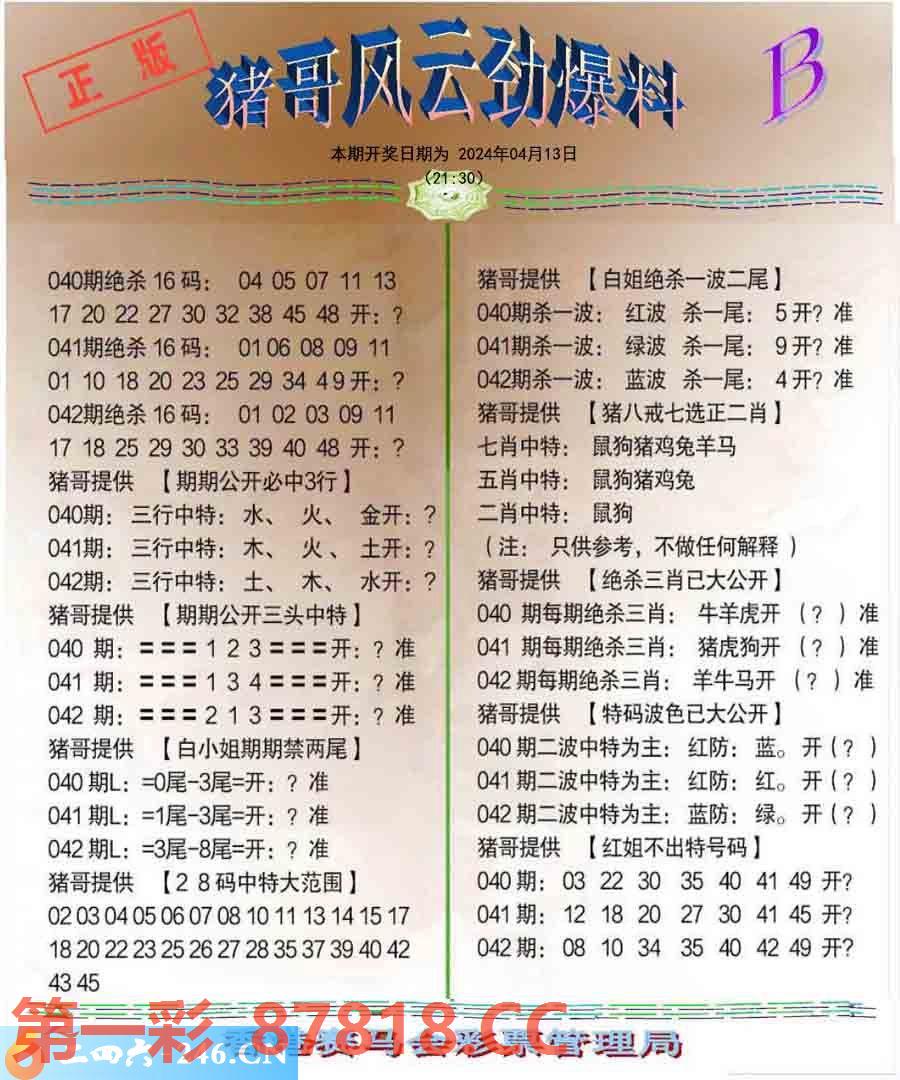 正版
猪哥风云劲爆料
B
本期开奖日期为 2024年04月13日
(21:30)
040期绝杀16码： 04 05 07 11 13
17 20 22 27 30 32 38 45 48 开：?
041期绝杀16码： 01 06 08 09 11
01 10 18 20 23 25 29 34 49开：?
042期绝杀16码： 01 02 03 09 11
17 18 25 29 30 33 39 40 48 开：?
猪哥提供 【期期公开必中3行】
040期：三行中特：水、 火、 金开：?
041期：三行中特：木、 火、 土开：?
042期：三行中特：土、 木、 水开：?
猪哥提供 【期期公开三头中特】
040 期：===1 2 3===开：? 准
041 期：===1 3 4===开：? 准
042 期：===2 1 3===开：? 准
猪哥提供 【白小姐期期禁两尾】
040期L：=0尾-3尾=开：? 准
041期L：=1尾-3尾=开：? 准
042期L：=3尾-8尾=开：? 准
猪哥提供 【28码中特大范围】
02 03 04 05 06 07 08 10 11 13 14 15 17
18 20 22 23 25 26 27 28 35 37 39 40 42
43 45
猪哥提供 【白姐绝杀一波二尾】
040期杀一波： 红波 杀一尾： 5开? 准
041期杀一波： 绿波 杀一尾： 9开? 准
042期杀一波： 蓝波 杀一尾： 4开? 准
猪哥提供 【猪八戒七选正二肖】
七肖中特： 鼠狗猪鸡兔羊马
五肖中特： 鼠狗猪鸡兔
二肖中特： 鼠狗
（注： 只供参考，不做任何解释 ）
猪哥提供 【绝杀三肖已大公开】
040 期每期绝杀三肖： 牛羊虎开 （? ）准
041 期每期绝杀三肖： 猪虎狗开 （? ）准
042 期每期绝杀三肖： 羊牛马开 （? ）准
猪哥提供 【特码波色已大公开】
040期二波中特为主：红防：蓝。开(? )
041期二波中特为主：红防：红。开(? )
042期二波中特为主：蓝防：绿。开(? )
猪哥提供 【红姐不出特号码】
040期：03 22 30 35 40 41 49 开?
041期：12 18 20 27 30 41 45 开?
042期：08 10 34 35 40 42 49 开?
第一彩 87818.CC
二四六 246.CN
香港赛马会彩票管理局